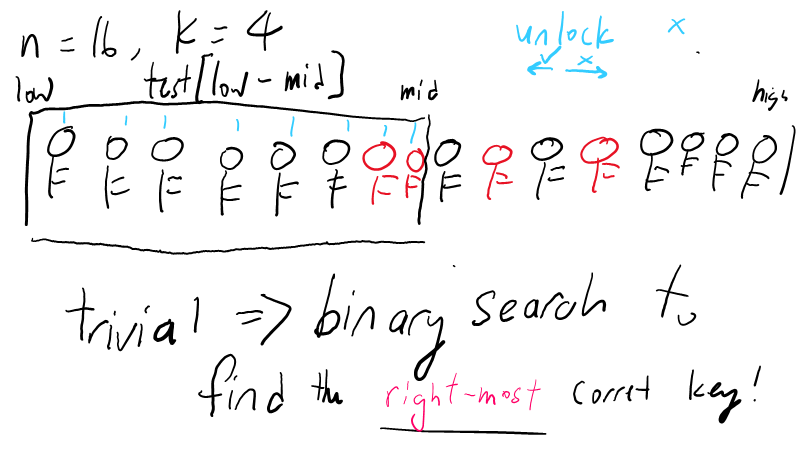 n = 16, k = 4
unlock x
✓ x
low test[low - mid] mid high
trivial => binary search to
find the right-most corret key!